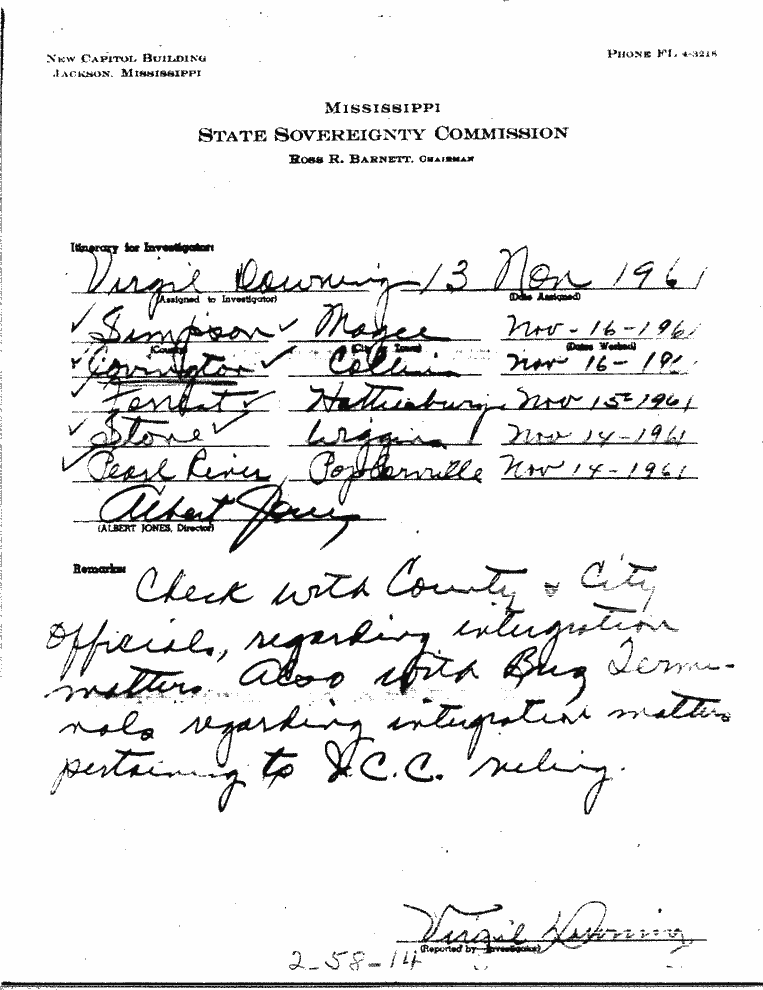 NEW CAPITOL BUILDING
JACKSON, MISSISSIPPI
PHONE FL 4-3218
MISSISSIPPI
STATE SOVEREIGNTY COMMISSION
ROSS R. BARNETT, CHAIRMAN
Itinerary for Investigator:
Virgil Downing 13 Nov 1961
(Assigned to Investigator) (Date Assigned)
✓ Simpson ✓ Magee Nov-16-1961
(County) (City or Town) (Dates Worked)
✓ Covington ✓ Collins Nov 16-19
✓ Forrest ✓ Hattiesburg Nov 15-1961
✓ Stone ✓ Wiggins Nov 14-1961
✓ Pearl River Poplarville Nov 14-1961
Albert Jones
(ALBERT JONES, Director)
Remarks:
Check with County & City
Officials, regarding integration
matters. Also with Bus Termi-
nals regarding integration matters
pertaining to I.C.C. ruling.
Virgil Downing
(Reported by Investigator)
2-58-14